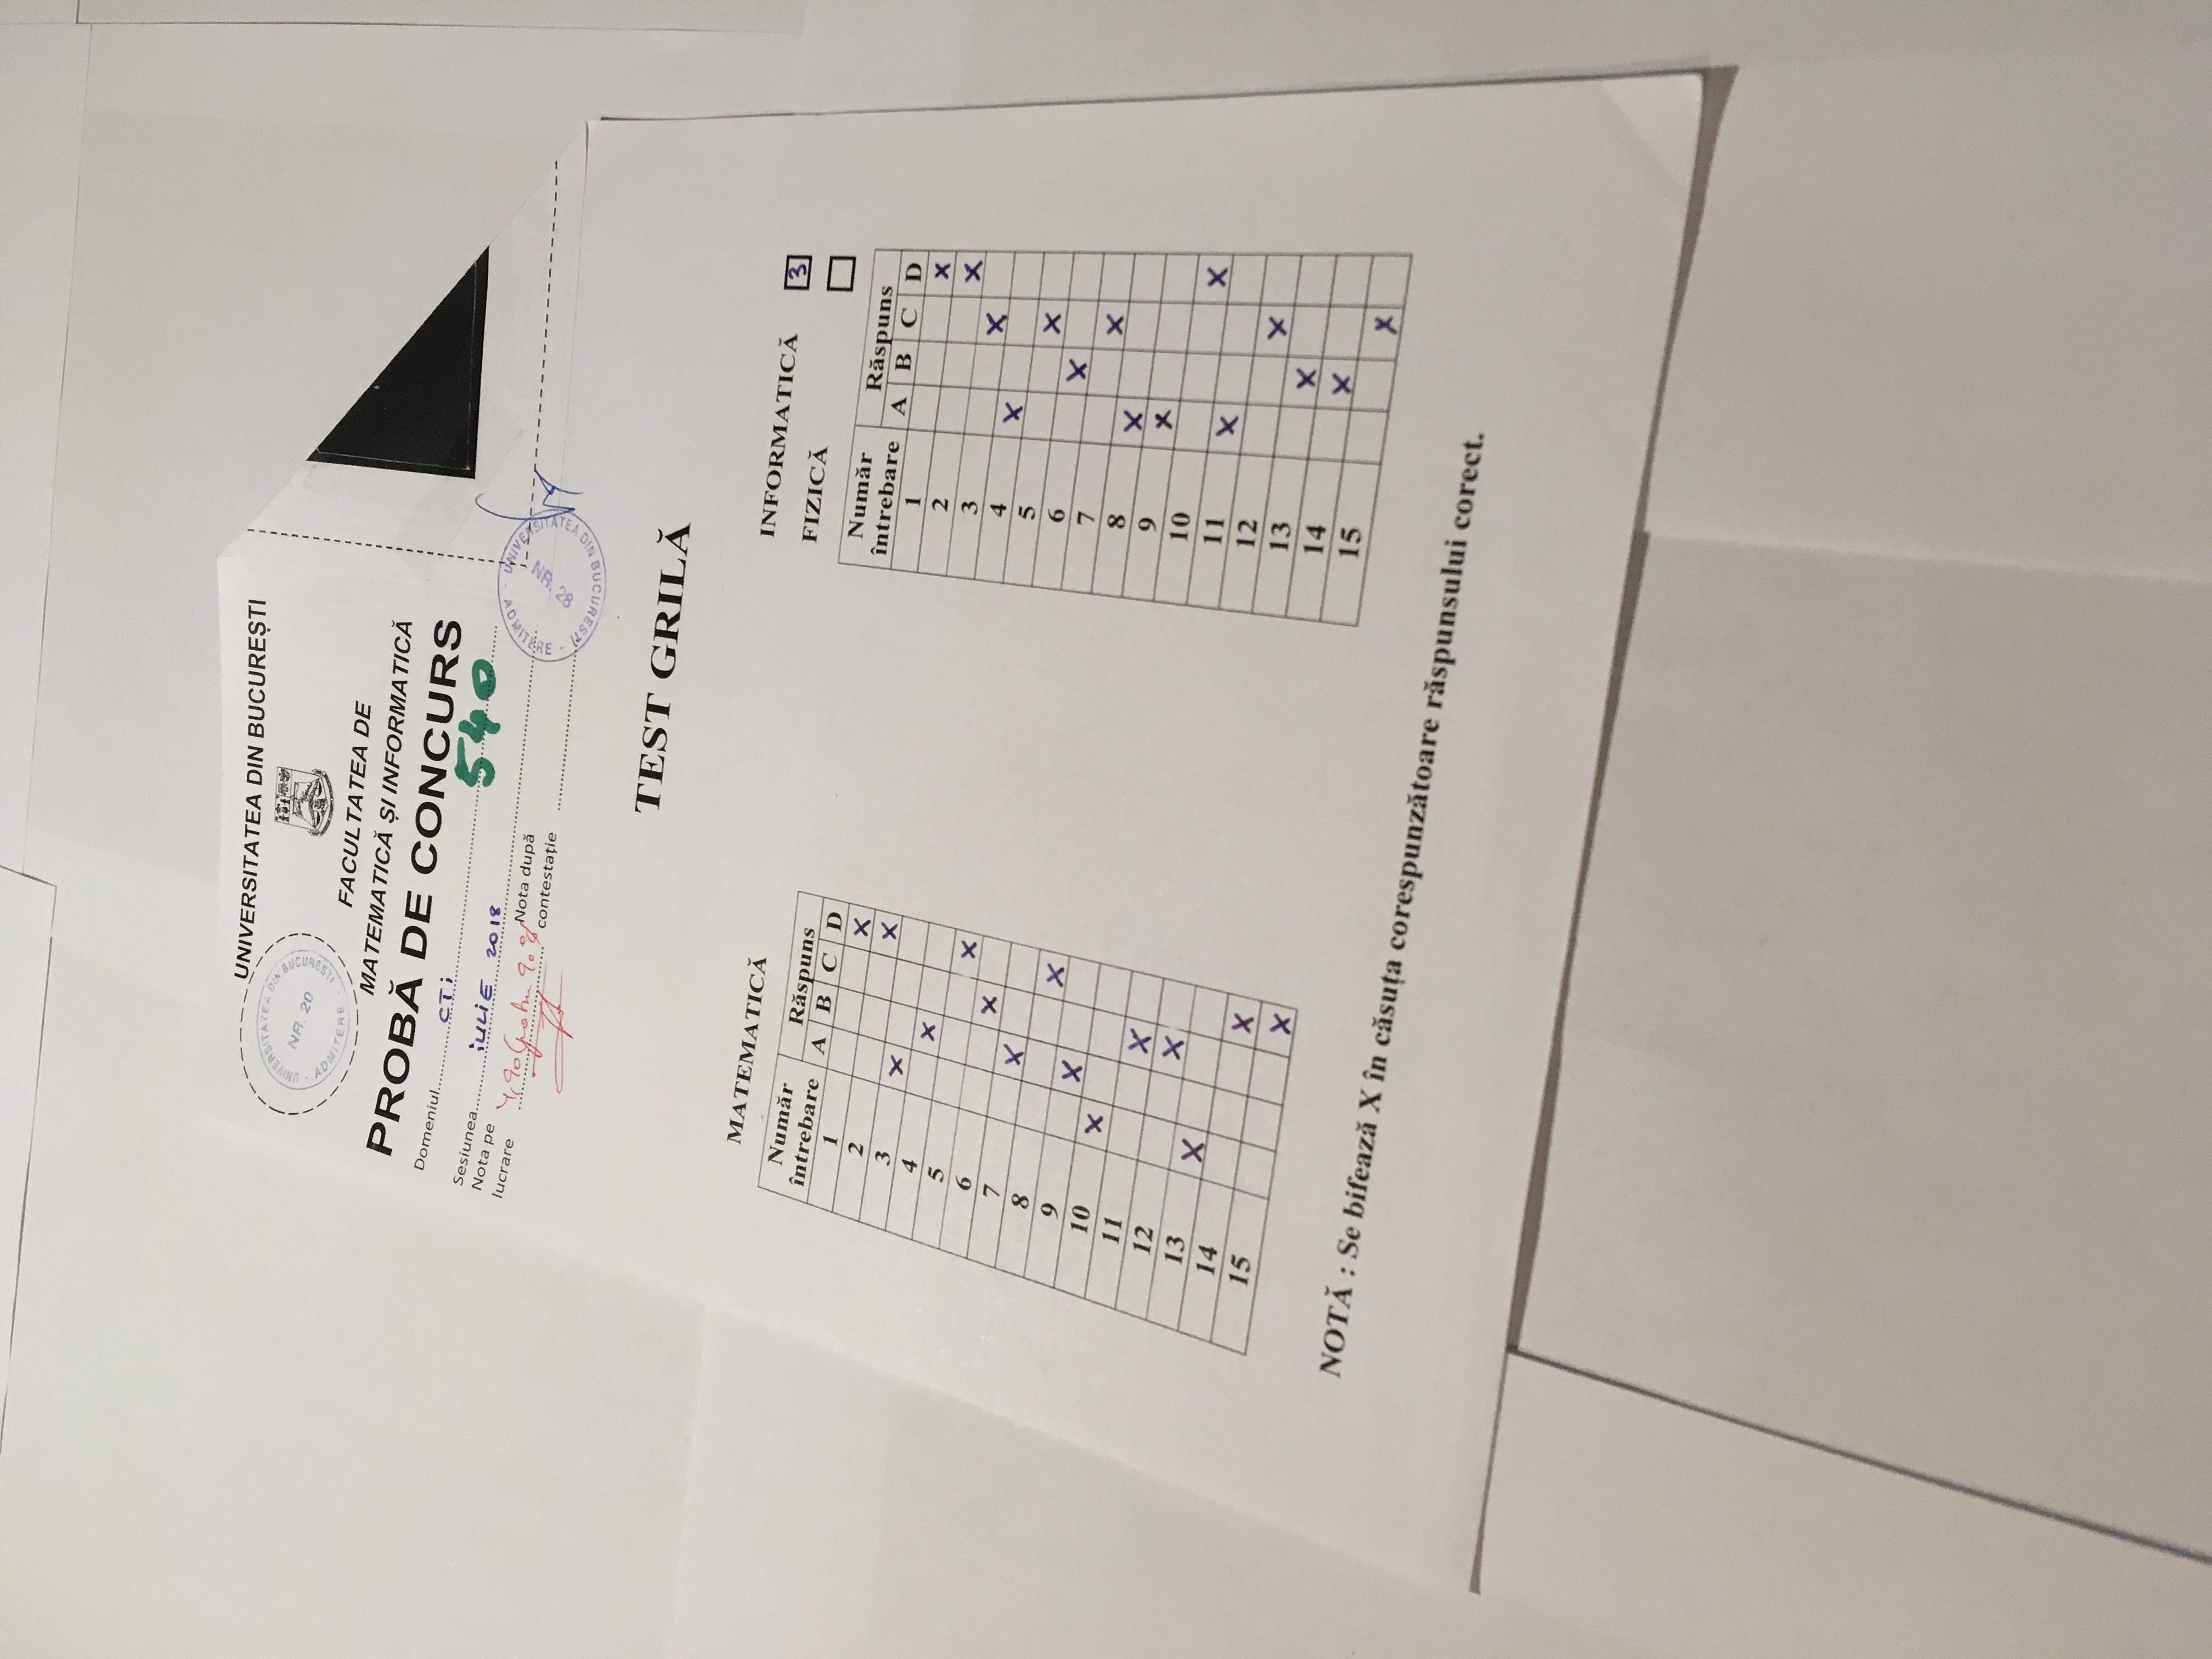 UNIVERSITATEA DIN BUCUREȘTI
UNIVERSITATEA DIN BUCUREȘTI · ADMITERE ·
NR. 20
FACULTATEA DE
MATEMATICĂ ȘI INFORMATICĂ
PROBĂ DE CONCURS
Domeniul CTi
540
Sesiunea iULiE 2018
Nota pe lucrare 4,90
Nota după contestație
UNIVERSITATEA DIN BUCUREȘTI · ADMITERE ·
NR. 28
TEST GRILĂ
MATEMATICĂ
Număr întrebare Răspuns
A B C D
1 X
2 X
3 X
4 X
5 X
6 X
7 X
8 X
9 X
10 X
11 X
12 X
13 X
14 X
15 X
INFORMATICĂ 3
FIZICĂ
Număr întrebare Răspuns
A B C D
1 X
2 X
3 X
4 X
5 X
6 X
7 X
8 X
9 X
10 X
11 X
12 X
13 X
14 X
15 X
NOTĂ : Se bifează X în căsuța corespunzătoare răspunsului corect.